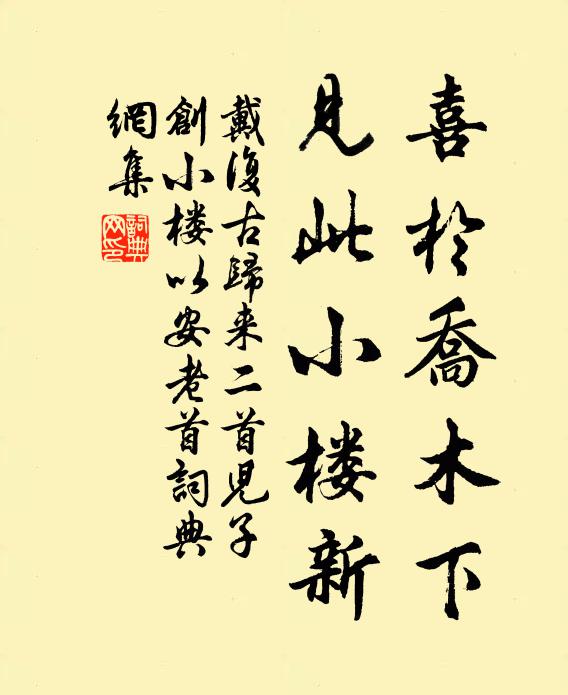 喜於喬木下
見此小楼新
戴復古歸来二首兒子
創小楼以安老首詞典
網集
詞典
网印